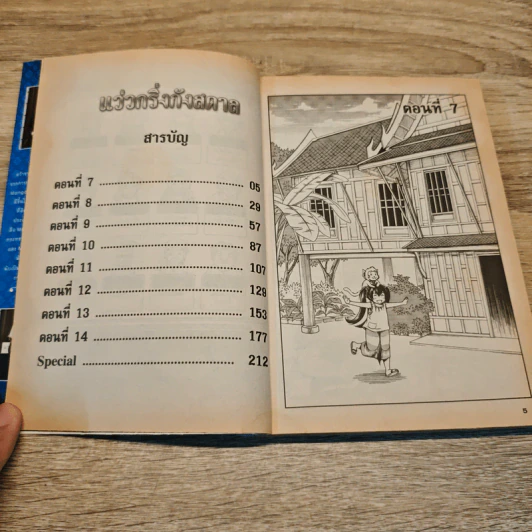 แว่วกริ่งกังสดาล
สารบัญ
ตอนที่ 7 ........................................ 05
ตอนที่ 8 ........................................ 29
ตอนที่ 9 ........................................ 57
ตอนที่ 10 ........................................ 87
ตอนที่ 11 ........................................ 107
ตอนที่ 12 ........................................ 129
ตอนที่ 13 ........................................ 153
ตอนที่ 14 ........................................ 177
Special ........................................ 212
ตอนที่ 7
5